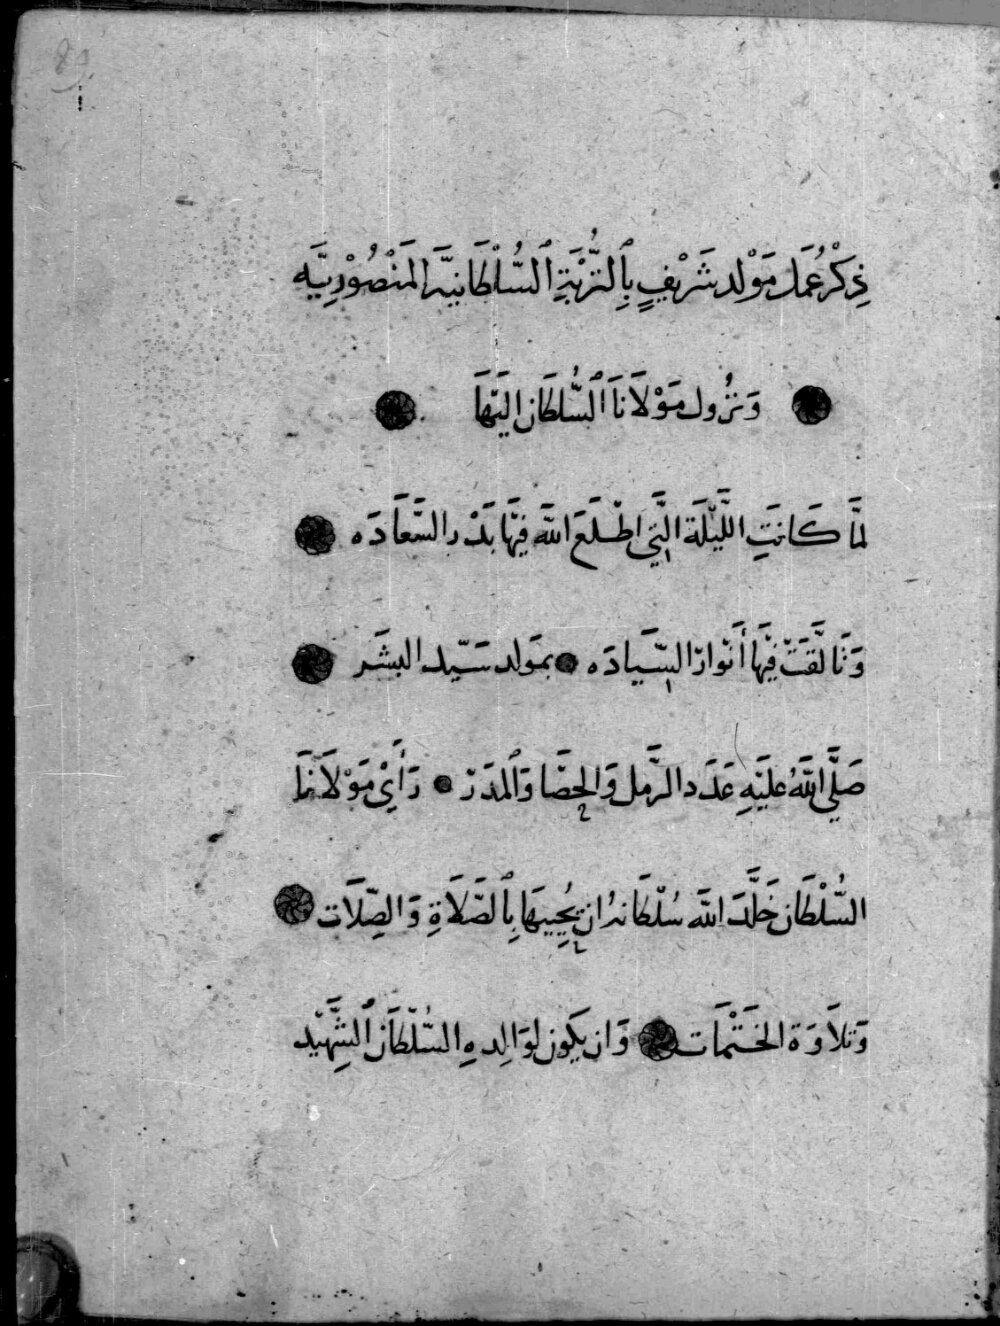 ذِكْرُ عُمَلَ مَوْلد شَرِيْفٍ بِالتُّرْبَةِ السُّلْطَانِيَّة المَنْصُوْرِيَّه
وَنزُول مَوْلَانَا السُّلطَان اليَهَا
لمَّا كَانتَ اللَّيْلَة الَّتي اطْلَعَ اللَّه فِيْهَا بَدْر السَّعَادَه
وَتَالَّقَتْ فِيْهَا أَنْوار السِّيَادَه بمَولد سَيّد البشَر
صَلَّي اللَّهُ عَليَهِ عَدَد الرَّمل وَالحِصَا وَالمدَرْ رَأيْ مَوْلَانَا
السُّلْطَان خَلَّدَ اللَّه سُلْطَانهُ ان يُحِييهَا بِالصَّلَاةِ وَالصِّلَات
وَتلَاوَة الخَتْمَات وَان يَكون لوَالِدهِ السُّلْطَان الشَّهِيْد